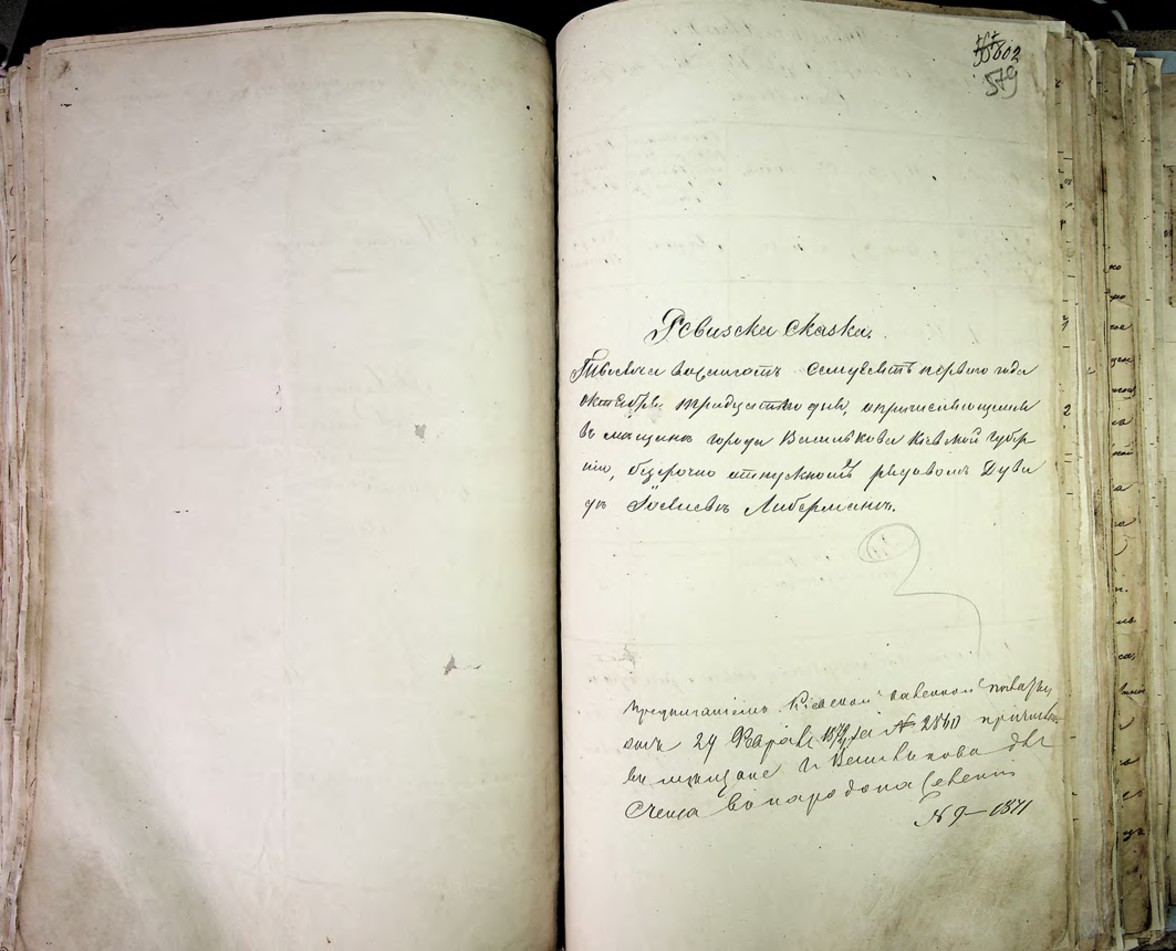 802
579
Ревизска Сказка.
Тысяча восемсотъ семдесятъ первого года
октября тридцатого дня, о причисляющемся
въ мещане города Василькова Кіевской губер-
ніи, безсрочно отпускномъ рядовомъ Дуви
дѣ Іосиевѣ Либерманѣ.
Предписаніемъ Кіевской казенной палаты
отъ 24 за № 2860 причислен
въ мещане г. Василькова для
счета
№ 9 – 1871